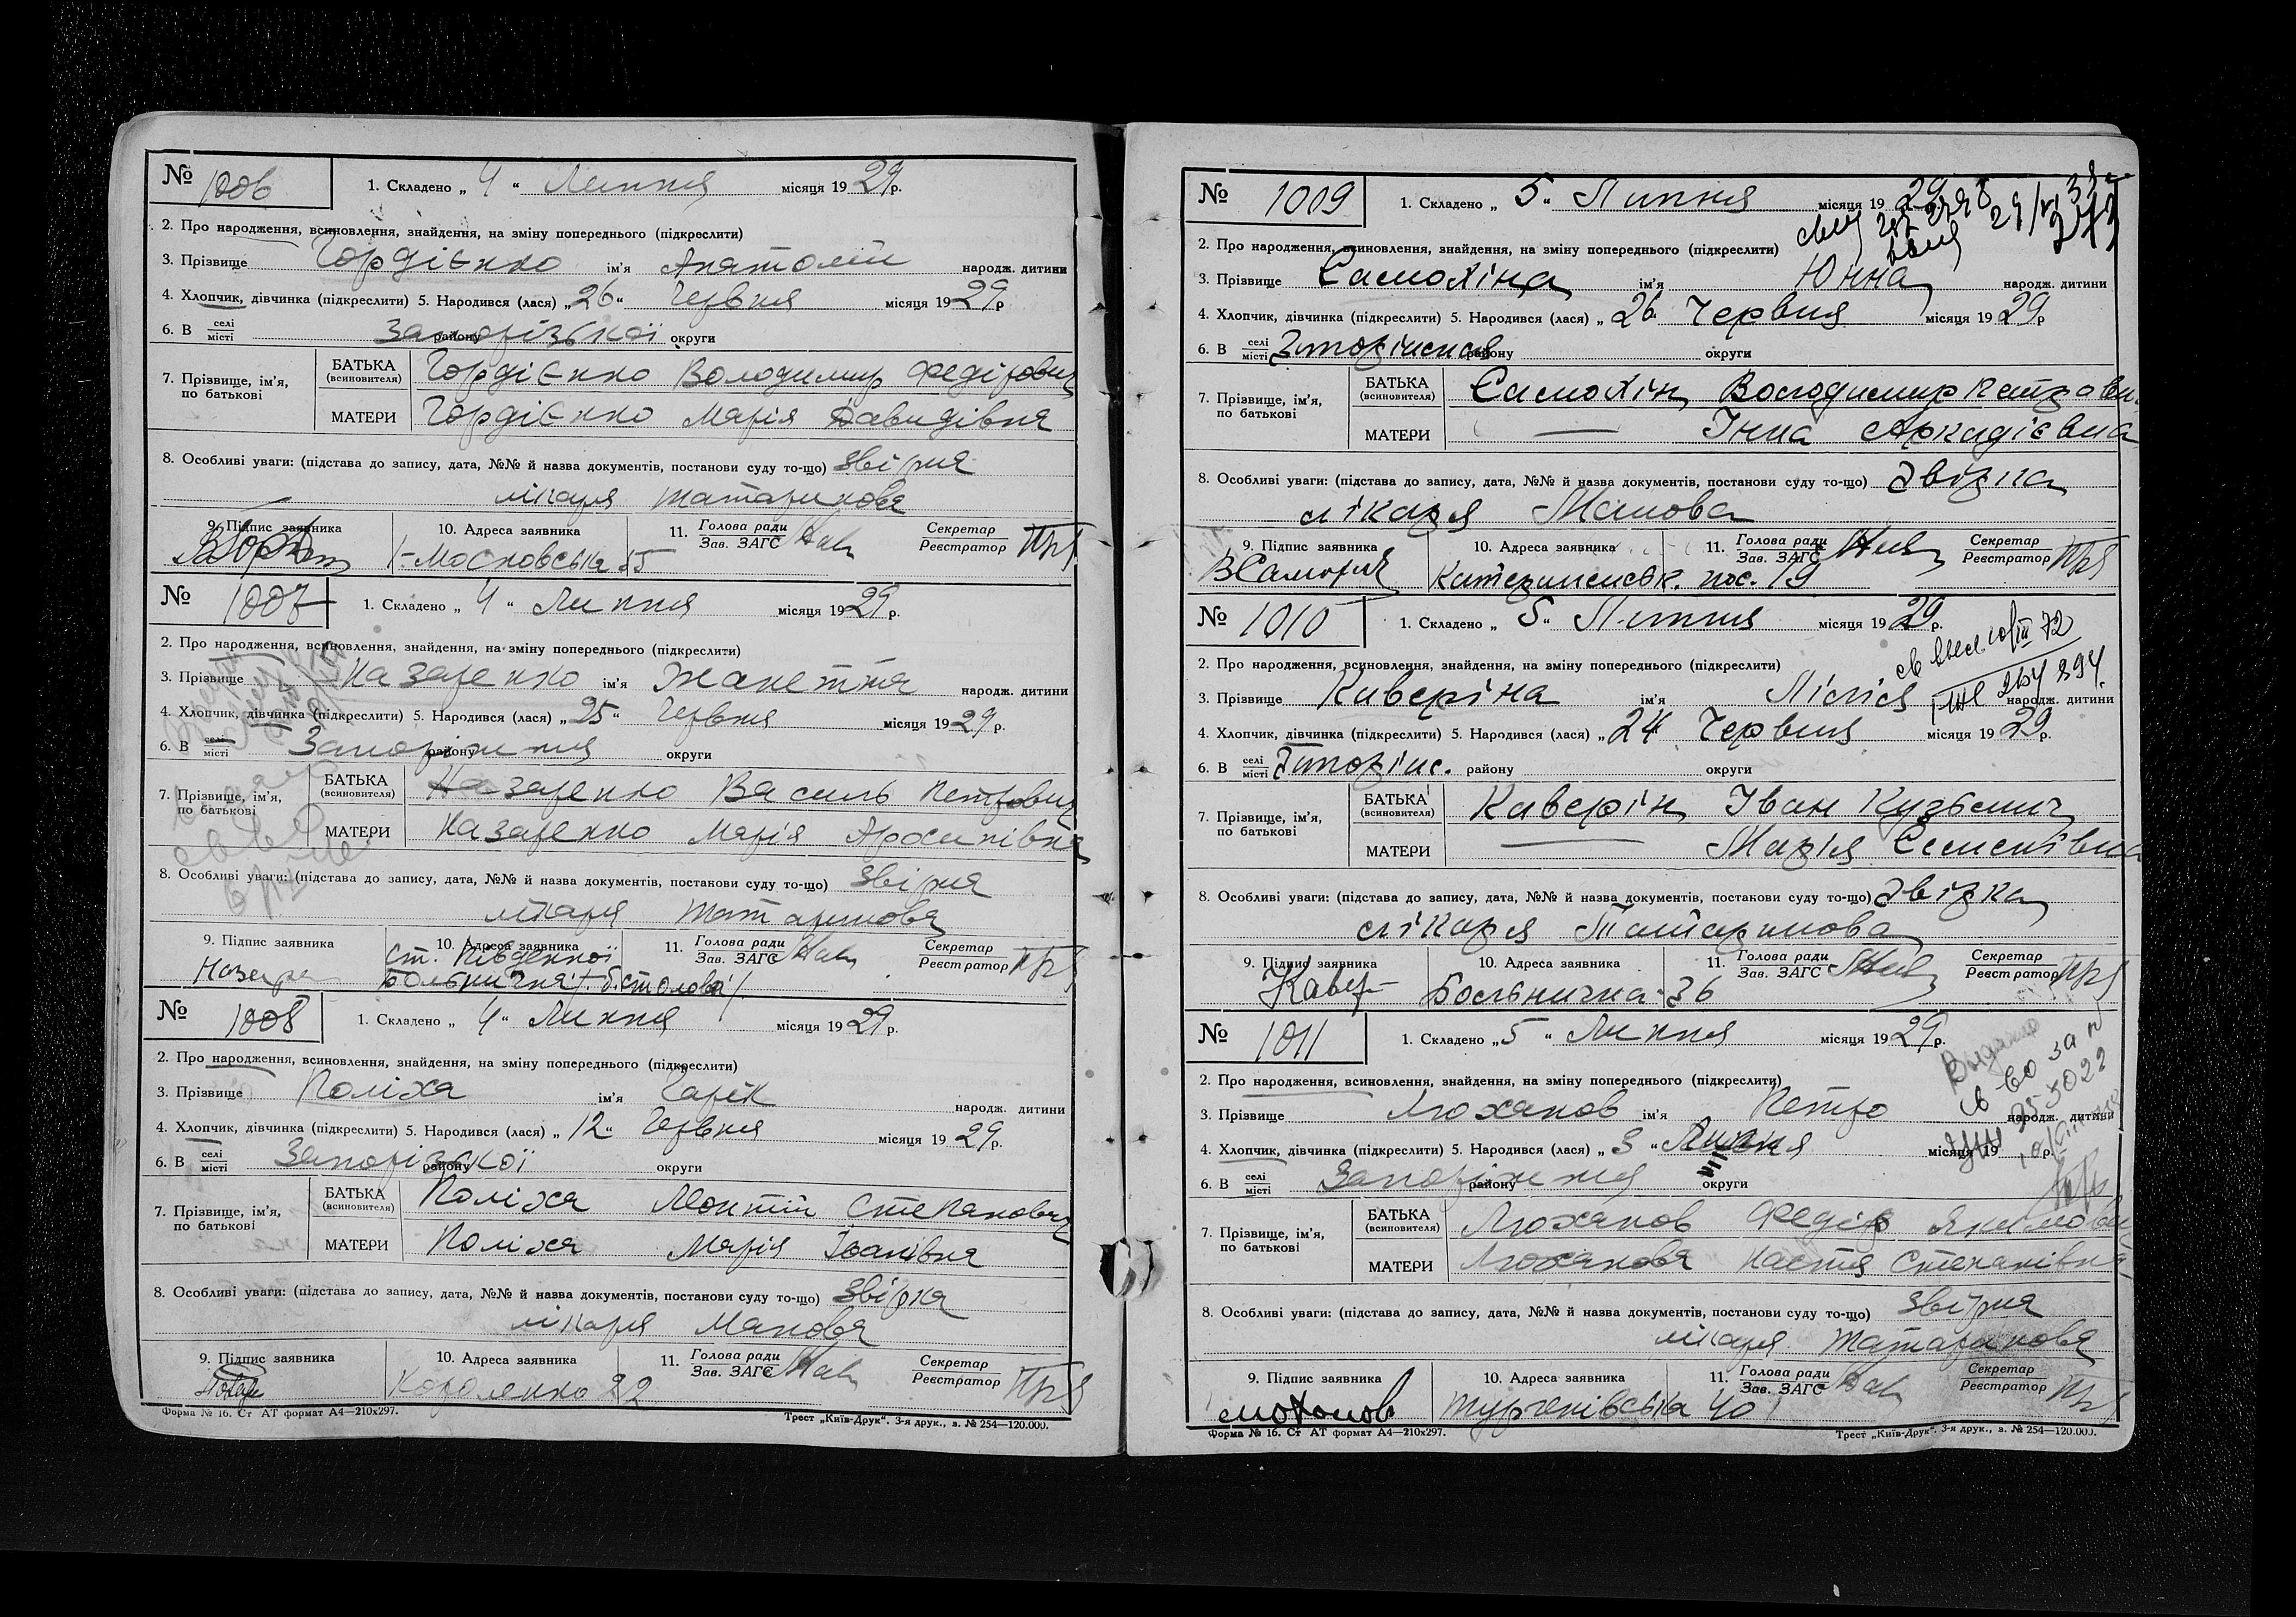 № 1006 1. Складено „ 4 “ Липня місяця 1929 р.
2. Про народження, всиновлення, знайдення, на зміну попереднього (підкреслити)
3. Прізвище Гордієнко ім'я Анатолій народж. дитини
4. Хлопчик, дівчинка (підкреслити) 5. Народився (лася) „ 26 “ Червня місяця 1929 р
6. В селі місті Запорізької району округи
7. Прізвище, ім'я, по батькові
БАТЬКА (всиновителя) Гордієнко Володимир Федірович
МАТЕРИ Гордієнко Марія Давидівна
8. Особливі уваги: (підстава до запису, дата, №№ й назва документів, постанови суду то-що) Звірка
лікаря Татаринова
9. Підпис заявника 10. Адреса заявника 11. Голова ради Зав. ЗАГС Секретар Реєстратор
Московська 55
№ 1007 1. Складено „ 4 “ Липня місяця 1929 р.
2. Про народження, всиновлення, знайдення, на зміну попереднього (підкреслити)
3. Прізвище Назаренко ім'я Жанетта народж. дитини
4. Хлопчик, дівчинка (підкреслити) 5. Народився (лася) „ 25 “ Червня місяця 1929 р.
6. В селі місті Запоріжжя району округи
7. Прізвище, ім'я, по батькові
БАТЬКА (всиновителя) Назаренко Василь Петрович
МАТЕРИ Назаренко Марія Аросипівна
8. Особливі уваги: (підстава до запису, дата, №№ й назва документів, постанови суду то-що) Звірка
лікаря Татаринова
9. Підпис заявника 10. Адреса заявника 11. Голова ради Зав. ЗАГС Секретар Реєстратор
ст. Південної
Больнична
№ 1008 1. Складено „ 4 “ Липня місяця 1929 р.
2. Про народження, всиновлення, знайдення, на зміну попереднього (підкреслити)
3. Прізвище Поліха ім'я Гарік народж. дитини
4. Хлопчик, дівчинка (підкреслити) 5. Народився (лася) „ 12 “ Червня місяця 1929 р.
6. В селі місті Запорізької району округи
7. Прізвище, ім'я, по батькові
БАТЬКА (всиновителя) Поліха Леонтій Степанович
МАТЕРИ Поліха Марія Іванівна
8. Особливі уваги: (підстава до запису, дата, №№ й назва документів, постанови суду то-що) Звірка
лікаря Манова
9. Підпис заявника 10. Адреса заявника 11. Голова ради Зав. ЗАГС Секретар Реєстратор
Короленко 22
Форма № 16. Ст АТ формат А4—210х297. Трест „Київ-Друк“. 3-я друк., з. № 254—120.000.
№ 1009 1. Складено „ 5 “ Липня місяця 1929
2. Про народження, всиновлення, знайдення, на зміну попереднього (підкреслити)
3. Прізвище Самохіна ім'я Юнна народж. дитини
4. Хлопчик, дівчинка (підкреслити) 5. Народився (лася) „ 26 Червня місяця 1929 р
6. В селі місті району округи
7. Прізвище, ім'я, по батькові
БАТЬКА (всиновителя) Самохін Володимир Петрович
МАТЕРИ — Інна Аркадієвна
8. Особливі уваги: (підстава до запису, дата, №№ й назва документів, постанови суду то-що) Звірка
лікаря Манова
9. Підпис заявника 10. Адреса заявника 11. Голова ради Зав. ЗАГС Секретар Реєстратор
Катериненськ. пос. 19
№ 1010 1. Складено „ 5 “ Липня місяця 1929 р.
2. Про народження, всиновлення, знайдення, на зміну попереднього (підкреслити)
3. Прізвище Каверіна ім'я Лілія народж. дитини
4. Хлопчик, дівчинка (підкреслити) 5. Народився (лася) „ 24 Червня місяця 1929 р.
6. В селі місті Запоріж. району округи
7. Прізвище, ім'я, по батькові
БАТЬКА (всиновителя) Каверін Іван Кузьмич
МАТЕРИ — Марія Семенівна
8. Особливі уваги: (підстава до запису, дата, №№ й назва документів, постанови суду то-що) Звірка
лікаря Татаринова
9. Підпис заявника 10. Адреса заявника 11. Голова ради Зав. ЗАГС Секретар Реєстратор
Кавер Больнична 36
№ 1011 1. Складено „ 5 “ Липня місяця 1929 р.
2. Про народження, всиновлення, знайдення, на зміну попереднього (підкреслити)
3. Прізвище Люханов ім'я Петро народж. дитини
4. Хлопчик, дівчинка (підкреслити) 5. Народився (лася) „ 3 “ Липня місяця 19 р.
6. В селі місті Запоріжжя району округи
7. Прізвище, ім'я, по батькові
БАТЬКА (всиновителя) Люханов Федір Якимович
МАТЕРИ Люханова Настя Степанівна
8. Особливі уваги: (підстава до запису, дата, №№ й назва документів, постанови суду то-що) Звірка
лікаря Татаринова
9. Підпис заявника 10. Адреса заявника 11. Голова ради Зав. ЗАГС Секретар Реєстратор
Тургенівська 40
Форма № 16. Ст АТ формат А4—210х297. Трест „Київ-Друк“. 3-я друк., з. № 254—120.000.